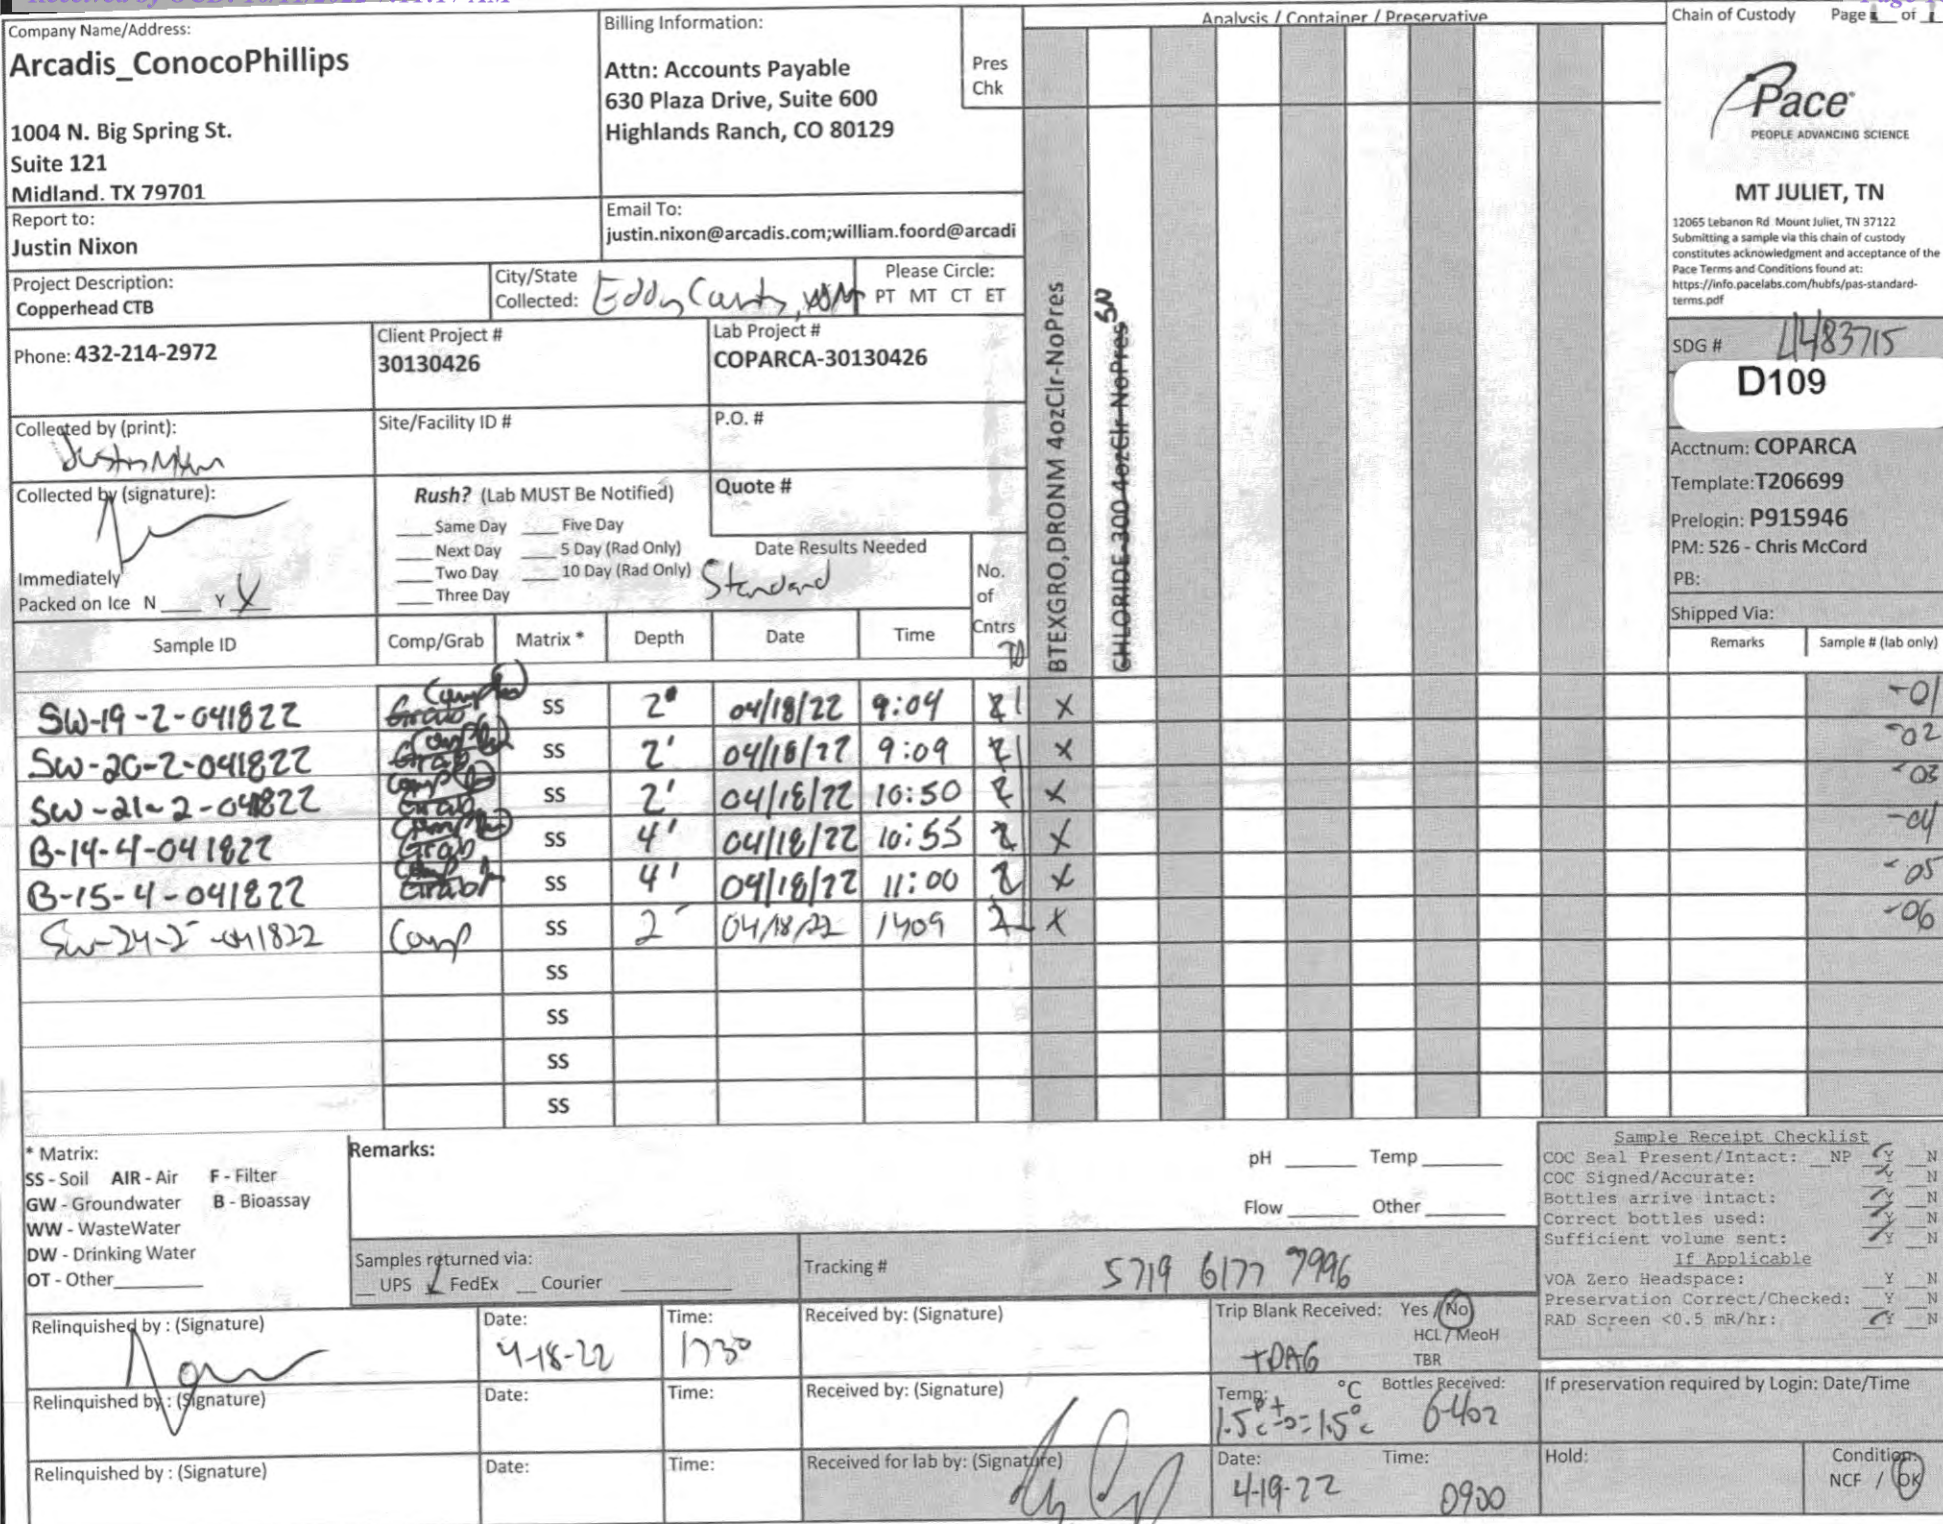 Received by OCD: 10/11/2022
Company Name/Address:
Arcadis_ConocoPhillips
1004 N. Big Spring St.
Suite 121
Midland, TX 79701
Billing Information:
Attn: Accounts Payable
630 Plaza Drive, Suite 600
Highlands Ranch, CO 80129
Pres
Chk
Analysis / Container / Preservative
Chain of Custody Page 1 of 1
Pace
PEOPLE ADVANCING SCIENCE
MT JULIET, TN
12065 Lebanon Rd Mount Juliet, TN 37122
Submitting a sample via this chain of custody
constitutes acknowledgment and acceptance of the
Pace Terms and Conditions found at:
https://info.pacelabs.com/hubfs/pas-standard-
terms.pdf
Report to:
Justin Nixon
Email To:
justin.nixon@arcadis.com;william.foord@arcadi
Project Description:
Copperhead CTB
City/State
Collected: Eddy County, NM
Please Circle:
PT MT CT ET
Phone: 432-214-2972
Client Project #
30130426
Lab Project #
COPARCA-30130426
Collected by (print):
Justin Nixon
Site/Facility ID #
P.O. #
Collected by (signature):
Rush? (Lab MUST Be Notified)
Same Day Five Day
Next Day 5 Day (Rad Only)
Two Day 10 Day (Rad Only)
Three Day
Quote #
Date Results Needed
Standard
Immediately
Packed on Ice N Y
No.
of
Cntrs
BTEXGRO,DRONM 4ozClr-NoPres
CHLORIDE-300 4ozClr-NoPres SN
SDG # L1483715
D109
Acctnum: COPARCA
Template:T206699
Prelogin: P915946
PM: 526 - Chris McCord
PB:
Shipped Via:
Sample ID Comp/Grab Matrix * Depth Date Time Remarks Sample # (lab only)
SW-19-2-041822 Grab Comp SS 2' 04/18/22 9:04 2 1 X -01
SW-20-2-041822 Grab Comp SS 2' 04/18/22 9:09 2 1 X -02
SW-21-2-041822 Grab Comp SS 2' 04/18/22 10:50 2 X -03
B-14-4-041822 Grab Comp SS 4' 04/18/22 10:55 2 X -04
B-15-4-041822 Grab Comp SS 4' 04/18/22 11:00 2 X -05
SW-24-2-041822 Comp SS 2 04/18/22 1409 2 X -06
SS
SS
SS
SS
* Matrix:
SS - Soil AIR - Air F - Filter
GW - Groundwater B - Bioassay
WW - WasteWater
DW - Drinking Water
OT - Other
Remarks:
pH Temp
Flow Other
Sample Receipt Checklist
COC Seal Present/Intact: NP Y N
COC Signed/Accurate: Y N
Bottles arrive intact: Y N
Correct bottles used: Y N
Sufficient volume sent: Y N
If Applicable
VOA Zero Headspace: Y N
Preservation Correct/Checked: Y N
RAD Screen <0.5 mR/hr: Y N
Samples returned via:
UPS FedEx Courier
Tracking # 5719 6177 7996
Relinquished by : (Signature)
Date: 4-18-22
Time: 1730
Received by: (Signature)
Trip Blank Received: Yes / No
HCL / MeoH
TBR
Relinquished by : (Signature)
Date:
Time:
Received by: (Signature)
Temp: °C Bottles Received:
1.5+0=1.5°c 6-4oz
If preservation required by Login: Date/Time
Relinquished by : (Signature)
Date:
Time:
Received for lab by: (Signature)
Date: 4-19-22
Time: 0900
Hold:
Condition:
NCF / OK